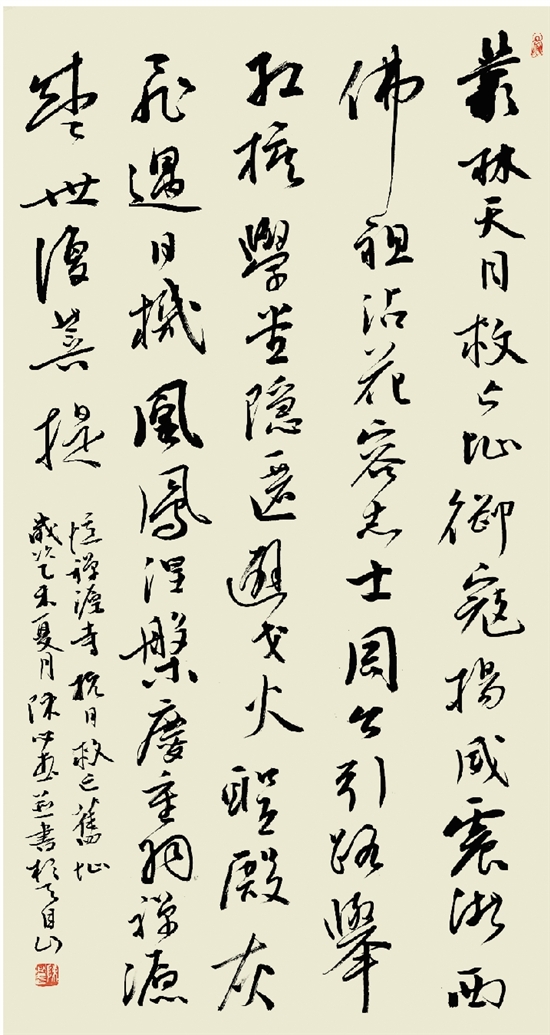 叢林天目救亡址御寇揚威震浙西
佛祖沾花容志士周公引路舉
紅旗學堂隱匿避戈火聖殿灰
飛遇日機凰鳳涅槃慶重禪源
盛世復菩提
憶禪源寺抗日救亡舊址
歲次乙未夏月陳並書於天目山